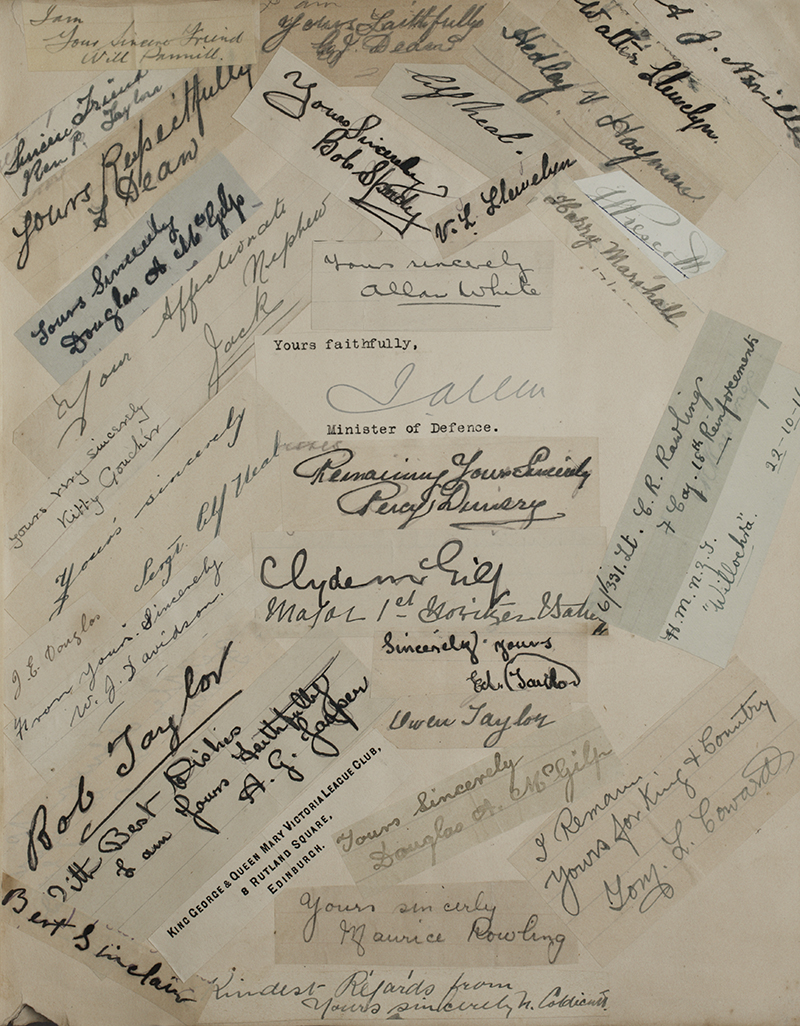 I am
Your Sincere Friend
Will Pannill.
Yours Faithfully
Dean
Hedley V Hayman
Walter Llewelyn.
A J. Neville
Sincere Friend
Ken P. Taylor
Yours Respectfully
S Dean
Yours Sincerely
Bob
Alf Neal.
V. L. Llewelyn
Prescott
Harry Marshall
Yours Sincerely
Douglas A McGilp
Your Affectionate
Nephew
Jack
Yours sincerely
Allan White
Yours faithfully,
J Allen
Minister of Defence.
Yours very sincerely
Kitty Goucher
Yours sincerely
Sergt. Alf Neal
Remaining Yours Sincerely
Percy
6/331. Lt. C. R. Rawlings
7 Coy. 18th Reinforcements
H. M. N. Z. T.
"Willochra".
22-10-16
Clyde McGilp
Major 1st Howitzer
J. E. Douglas
From Yours Sincerely
W. J. Davidson.
Sincerely yours
Ed. Taylor
Owen Taylor
Bob Taylor
With Best Wishes
I am Yours Faithfully
A. G. Jasper
KING GEORGE & QUEEN MARY VICTORIA LEAGUE CLUB,
8 RUTLAND SQUARE,
EDINBURGH.
Yours Sincerely
Douglas A. McGilp
I Remain
Yours for King & Country
Tom. L. Coward
Bert Sinclair
Yours sincerly
Maurice Rowling
Kindest Regards from
Yours sincerely N. Coldicutt.